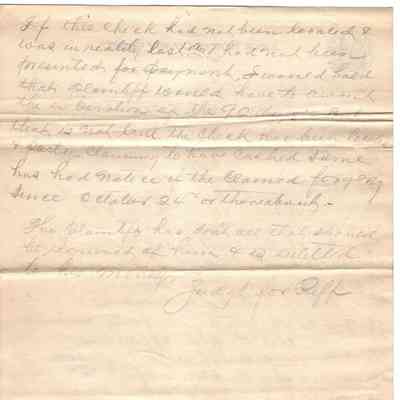 If this check had not been located &
was in reality lost & it had not been
presented for payment, I would hold
that plaintiff would have to await
the expiration of the 90 days. But
that is not so the check has been
& party claiming to have cashed same
has had notice of the claimed forgery
since October 26th or thereabouts.
The plaintiff has done all that should
be required of him & is entitled
to his money.
Judgt for Plff